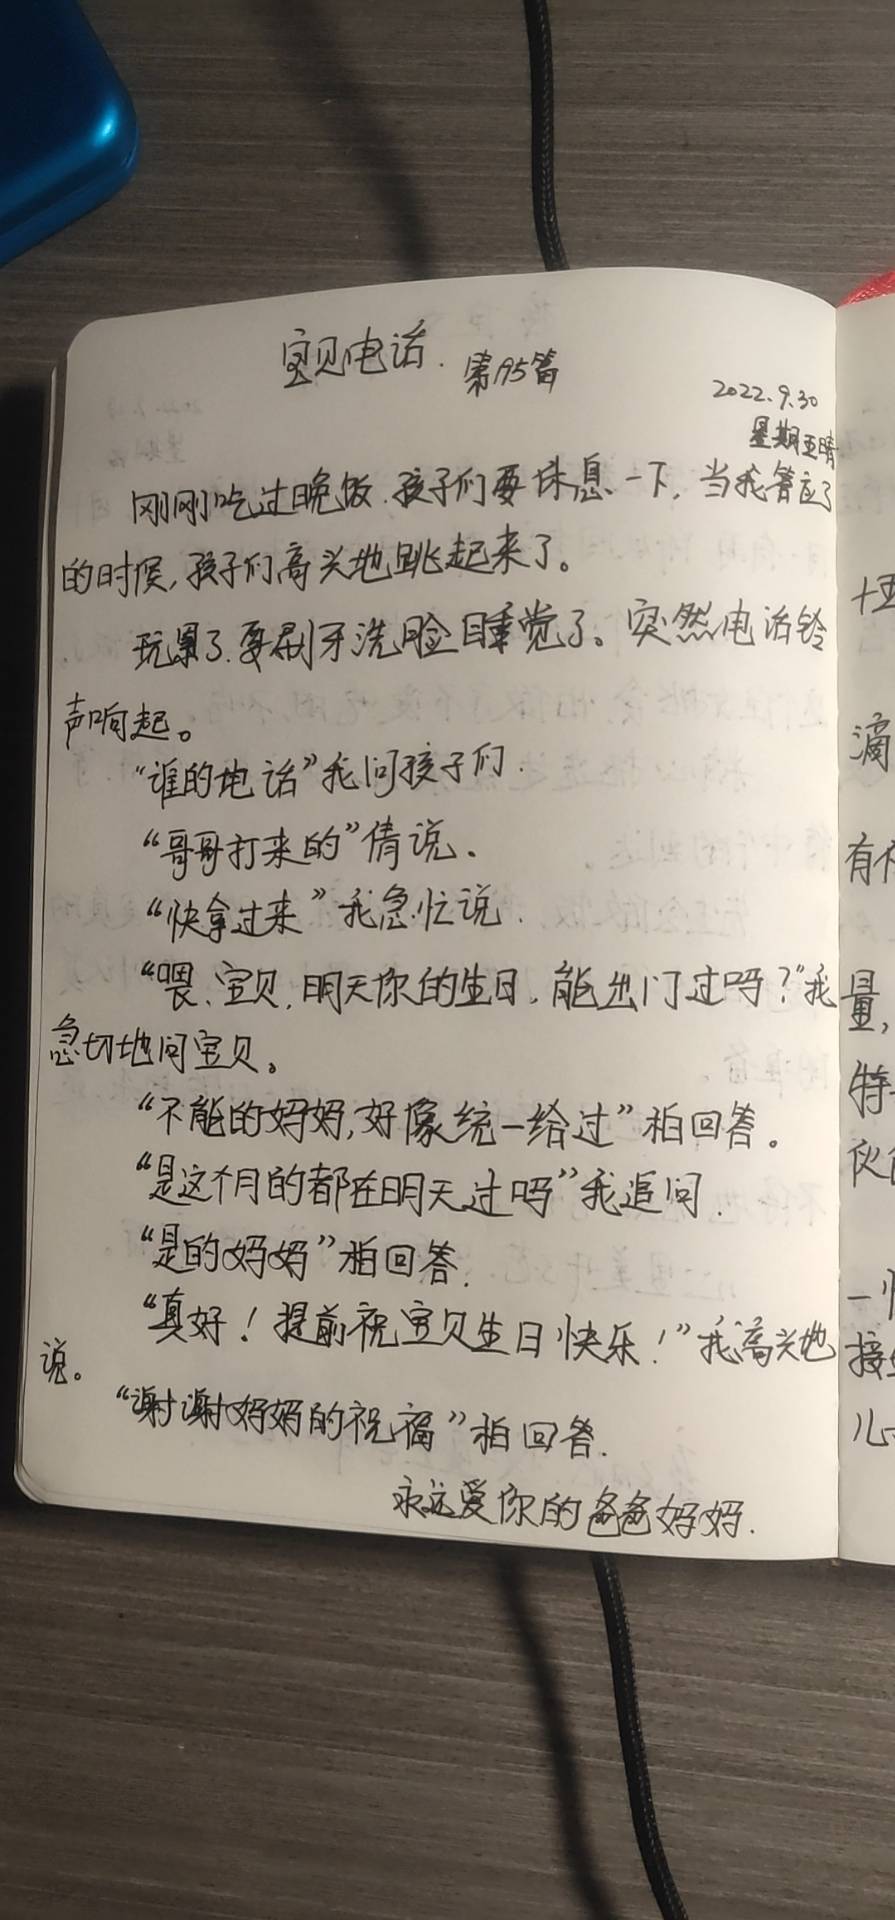 宝贝电话. 第195篇
2022.9.30
星期五晴
刚刚吃过晚饭,孩子们要休息一下,当我答应了
的时候,孩子们高兴地跳起来了。
玩累了,要刷牙洗脸睡觉了。突然电话铃
声响起。
“谁的电话”我问孩子们.
“哥哥打来的”倩说.
“快拿过来”我急忙说.
“喂、宝贝,明天你的生日,能出门过吗?”我
急切地问宝贝。
“不能的妈妈,好像统一给过”柏回答。
“是这个月的都在明天过吗”我追问.
“是的妈妈”柏回答.
“真好!提前祝宝贝生日快乐!”我高兴地
说。
“谢谢妈妈的祝福”柏回答.
永远爱你的爸爸妈妈.
十五
滴
有
量,
特
伙
一
接
儿